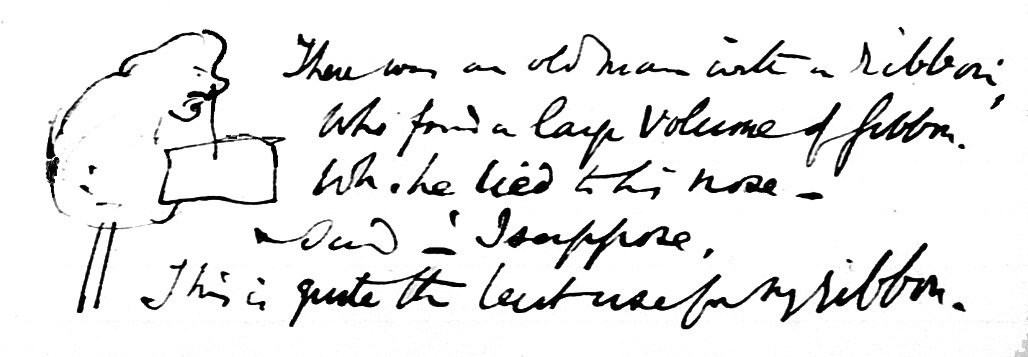 There was an old man with a ribbon,
Who found a large volume of Gibbon.
Wh. he tied to his nose –
And said – I suppose,
This is quite the best use for my ribbon.